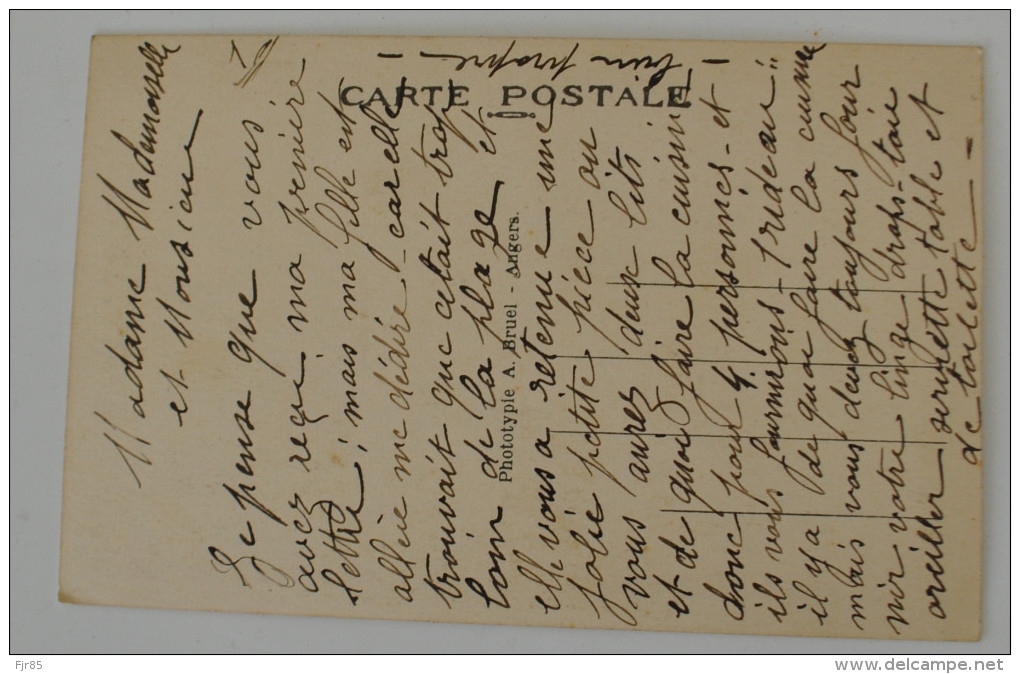 Madame Mademoiselle
et Monsieur
Je pense que vous
avez reçu ma première
lettre ; mais ma fille est
allée me dédire - car elle
trouvait que cetait trop
loin de la plage et
elle vous a retenue une
jolie petite pièce ou
vous aurez deux lits
et de quoi faire la cuisine
donc pour 4 personnes - et
ils vous fourniront - rideau
il y a de quoi faire la cuisine
mais vous devez toujours four
nir votre linge draps - taie
oreiller serviette table et
de toilette -
- bien propre -
CARTE POSTALE
Phototypie A. Bruel - Angers.
Fjr85
www.delcampe.net